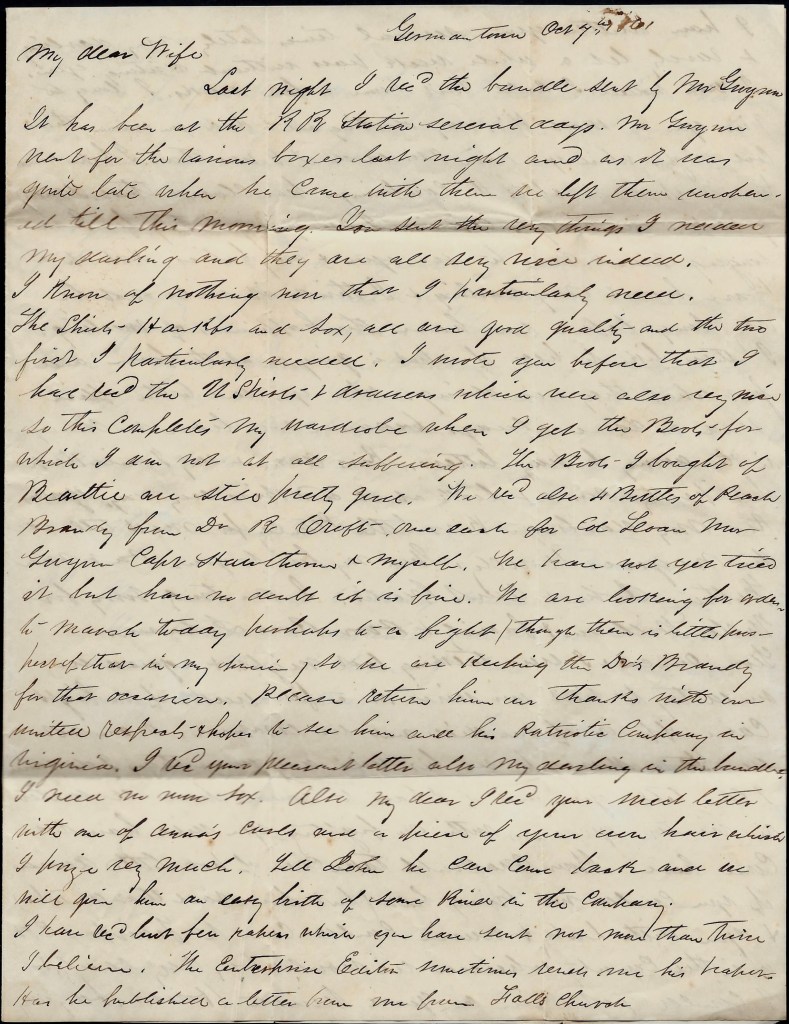 Germantown Oct 7th, 1861
My dear Wife
Last night I recd the bundle sent by Mr Gwynn
It has been at the RR Station several days. Mr Gwynn
went for the various boxes last night and as it was
quite late when he Came with them we left them unopen-
ed till this morning. You sent the very things I needed
my darling and they are all very nice indeed.
I Know of nothing now that I particularly need.
The Shirts Hankfs and Sox, all are good quality and the two
first I particularly needed. I wrote you before that I
had recd the U Shirts & drawers which were also very nice
so this Completes my wardrobe when I get the Boots for
which I am not at all suffering. The Boots I bought of
Beattie are still pretty good. We recd also 4 Bottles of Peach
Brandy from Dr R Croft, one each for Col Sloan Mr
Gwynn Capt Hawthorne & myself. We have not yet tried
it but have no doubt it is fine. We are looking for orders
to march today perhaps to a fight (though there is little pros-
pect of that in my opinion) so we are Keeping the Dr's Brandy
for that occasion. Please return him our thanks with our
united respects & hopes to see him and his Patriotic Company in
Virginia. I recd your pleasant letter also my darling in the bundle.
I need no more Sox. Also my dear I recd your sweet letter
with one of Anna's curls and a piece of your own hair which
I prize very much. Tell John he can Come back and we
will give him an easy birth of some Kind in the Company.
I have recd but few papers which you have sent not more than three
I believe. The Enterprise Editor sometimes sends me his papers
Has he published a letter from me from Falls Church